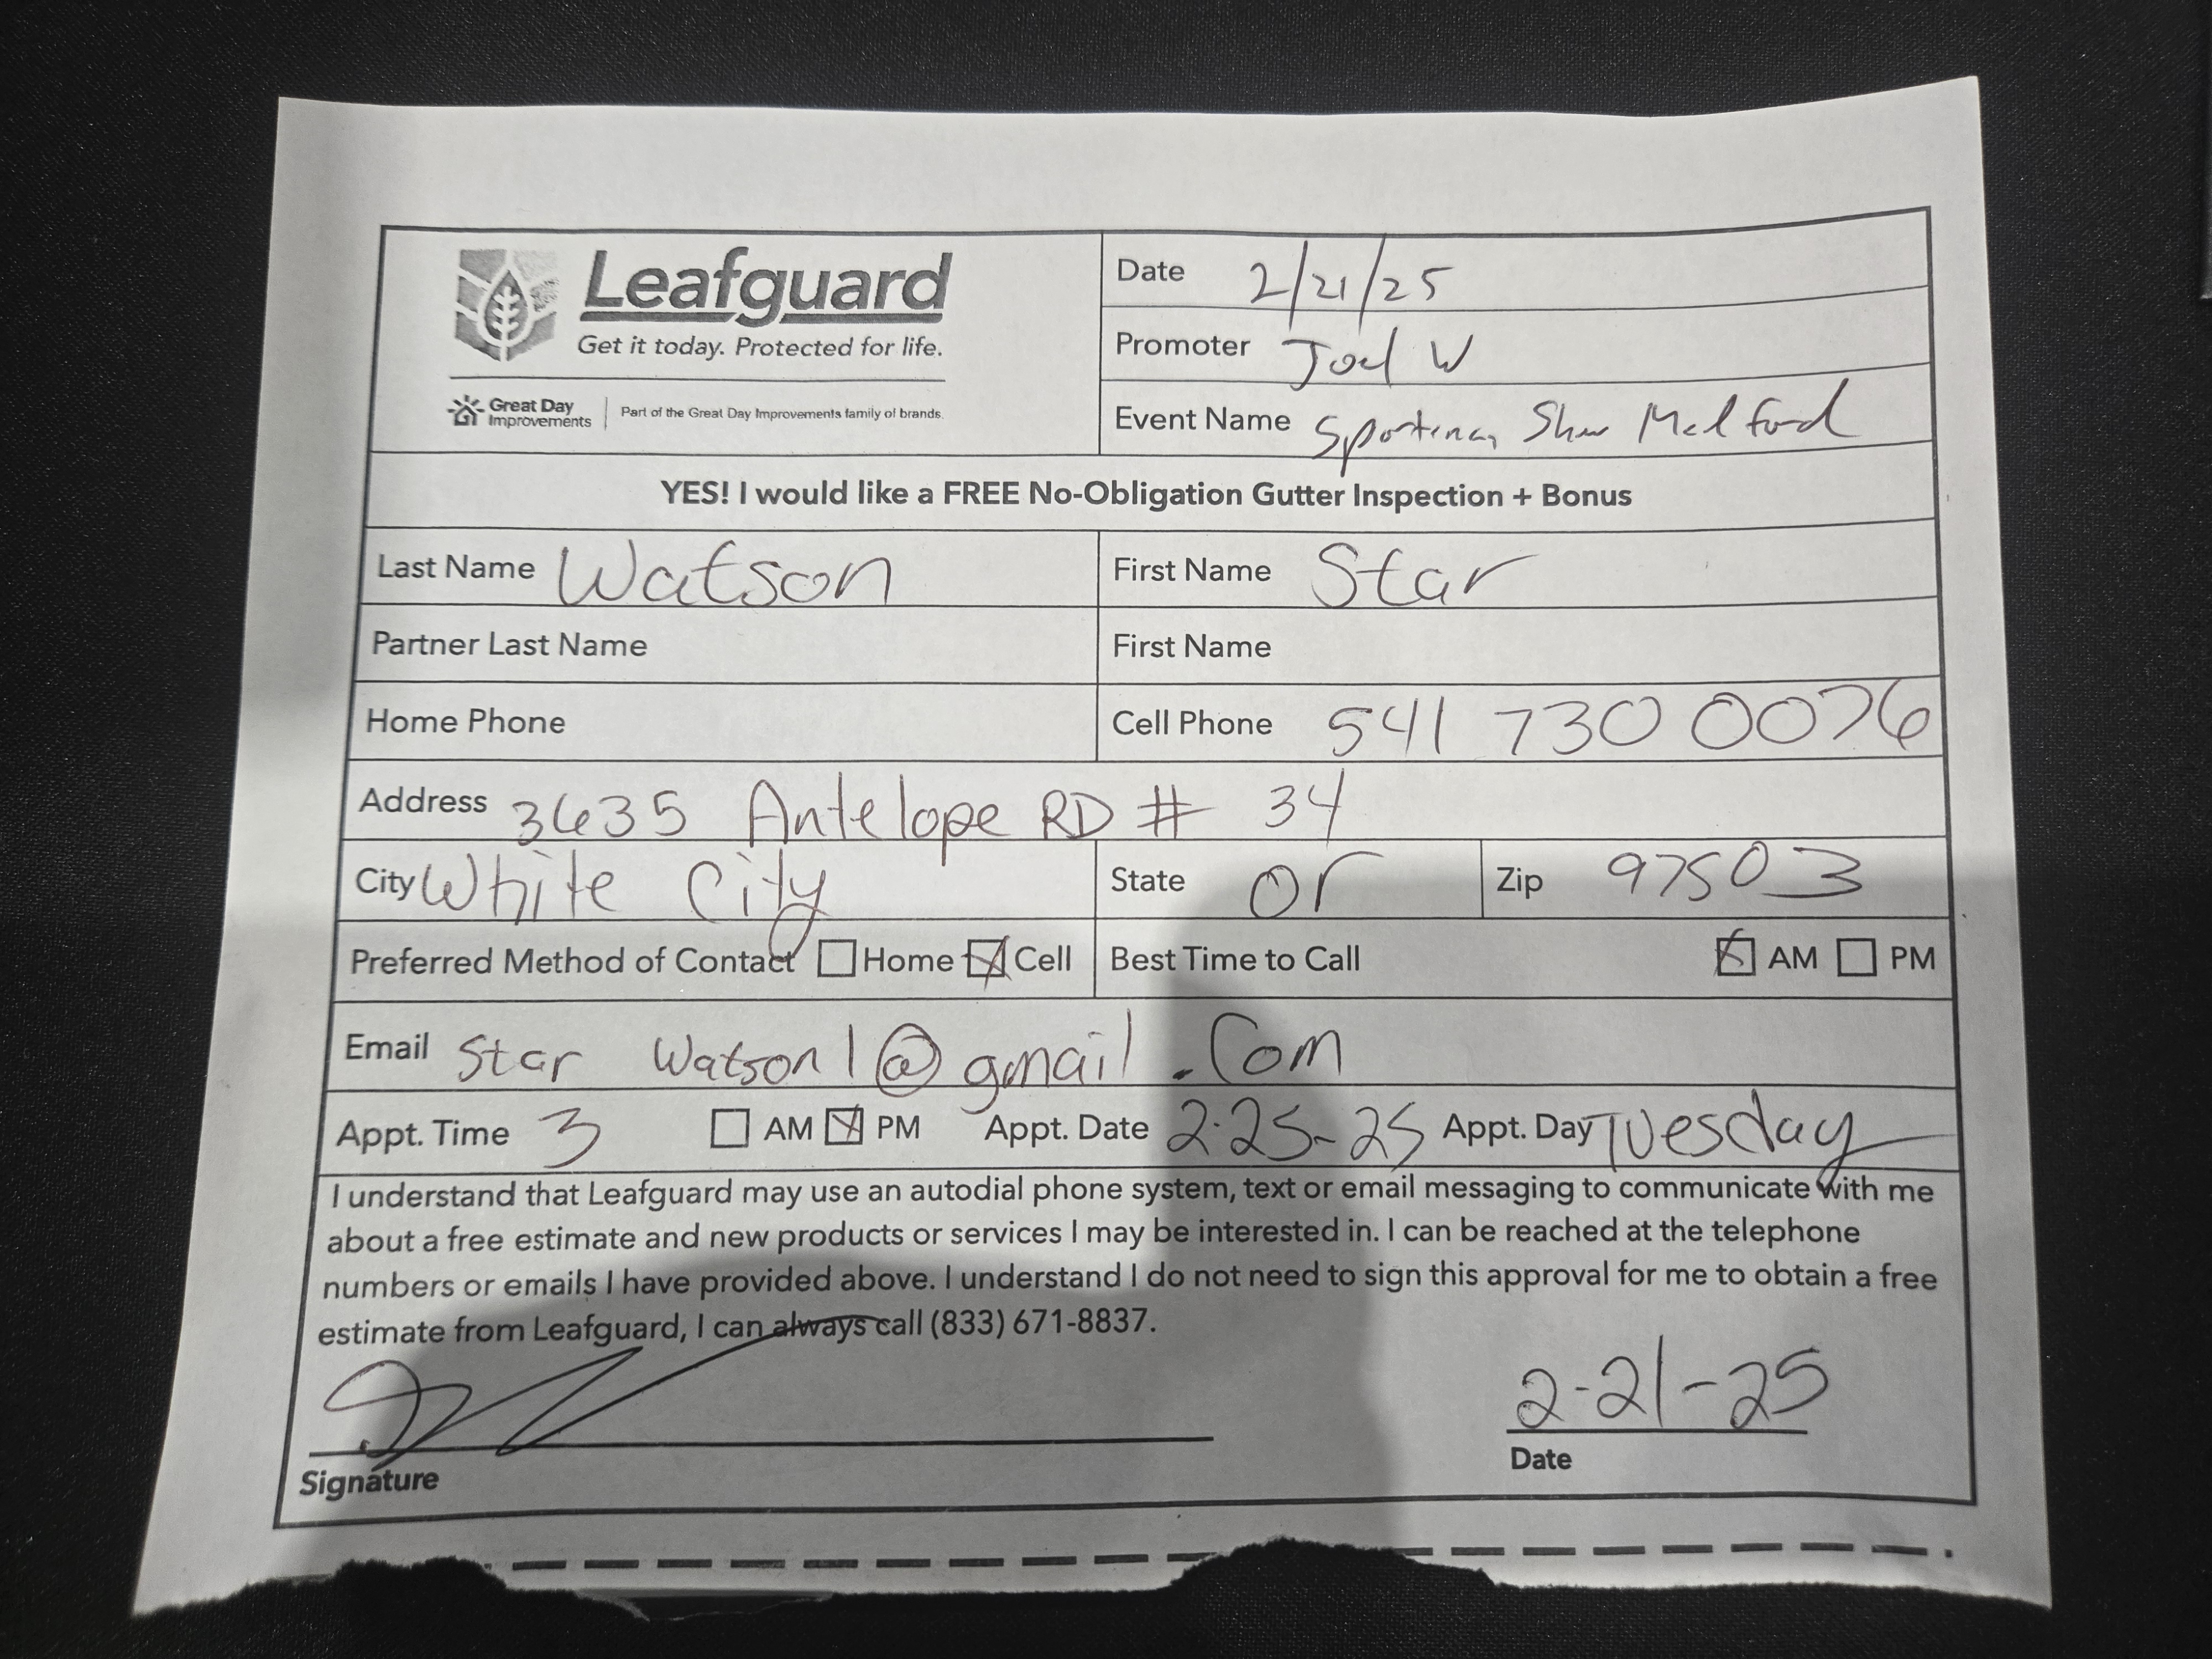 Leafguard
Get it today. Protected for life.
Great Day Improvements | Part of the Great Day Improvements family of brands.
Date 2/21/25
Promoter Joel W
Event Name Sporting Show Medford
YES! I would like a FREE No-Obligation Gutter Inspection + Bonus
Last Name Watson First Name Star
Partner Last Name First Name
Home Phone Cell Phone 541 730 0076
Address 3635 Antelope RD # 34
City White City State Or Zip 97503
Preferred Method of Contact ☐ Home ☒ Cell Best Time to Call ☒ AM ☐ PM
Email Star Watson1@gmail.com
Appt. Time 3 ☐ AM ☒ PM Appt. Date 2-25-25 Appt. Day Tuesday
I understand that Leafguard may use an autodial phone system, text or email messaging to communicate with me
about a free estimate and new products or services I may be interested in. I can be reached at the telephone
numbers or emails I have provided above. I understand I do not need to sign this approval for me to obtain a free
estimate from Leafguard, I can always call (833) 671-8837.
2-21-25
Signature Date